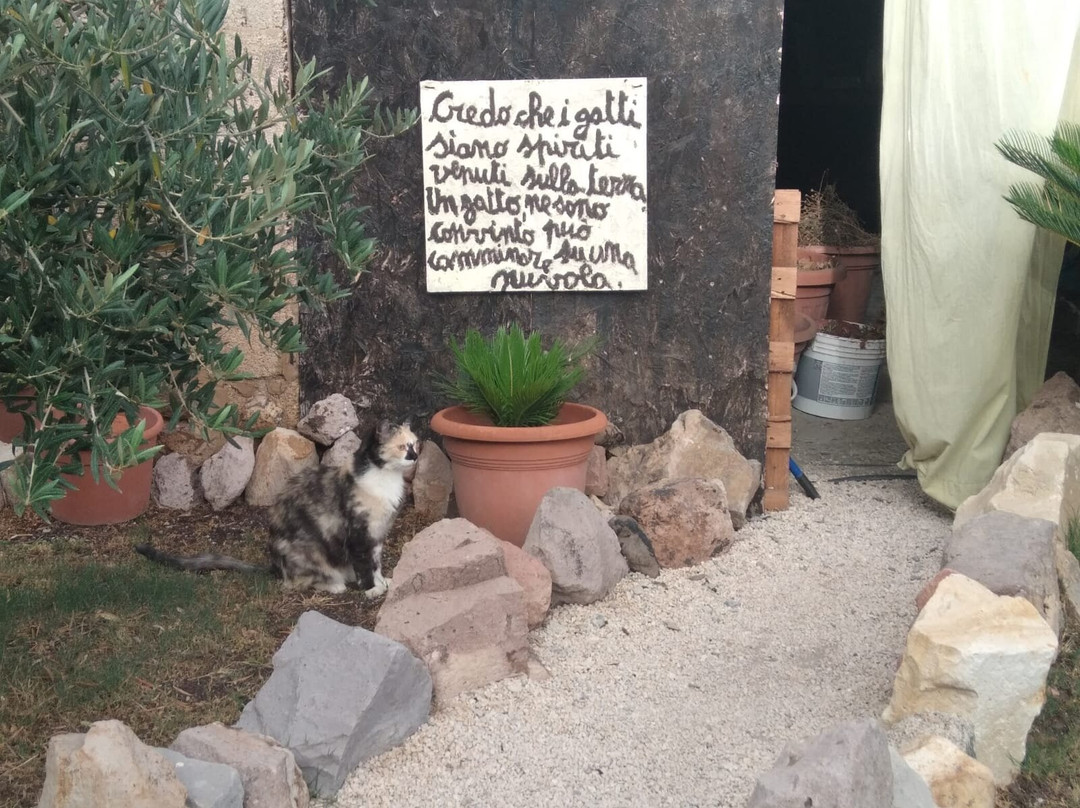 Credo che i gatti
siano spiriti
venuti sulla terra
Un gatto, ne sono
convinto, può
camminare su una
nuvola.